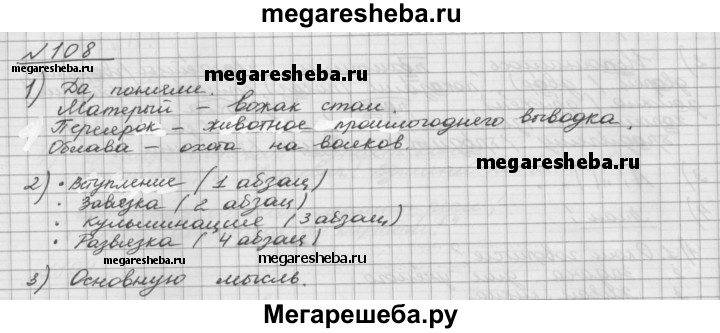 megaresheba.ru
№108
megaresheba.ru
1) Да поняли.
megaresheba.ru
Матерый – вожак стаи.
Переярок – животное прошлогоднего выводка.
Облава – охота на волков.
megaresheba.ru
2) • Вступление (1 абзац)
• Завязка (2 абзац)
• Кульминация (3 абзац)
• Развязка (4 абзац)
megaresheba.ru
megaresheba.ru
3) Основную мысль.
Мегарешеба.ру